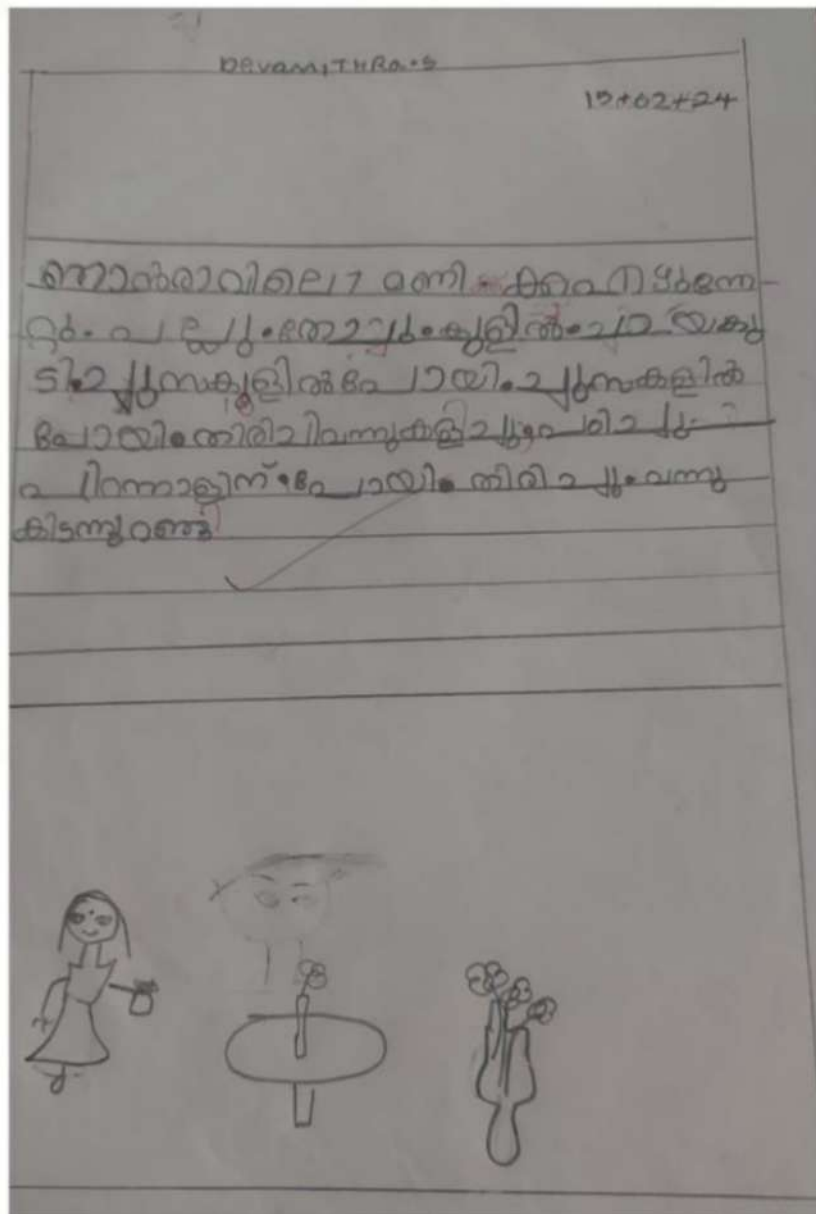 DevamiTHRa.S
19+02+24
ഞാൻരാവിലെ7 മണി
പല്ലും.തേച്ചും.കുളിൽ.ചായകു
ടിച്ചുസകുളിൽപോയി.ച്ചുസകളിൽ
പോയി.തിരിചിവന്നുകളിച്ചുപഠിച്ചു
പിറന്നാളിന്.പോയി.തിരിച്ചു.വന്നു
കിടന്നുറങ്ങി